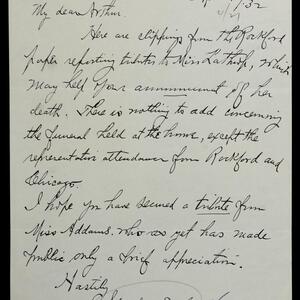 My dear Arthur,
Here are clippings from the Rockford
paper reporting tributes to Miss Lathrop, which
may help your announcement of her
death. There is nothing to add concerning
the funeral held at the home, except the
representative attendance from Rockford and
Chicago.
I hope you have secured a tribute from
Miss Addams, who as yet has made
public only a brief appreciation.
Hastily